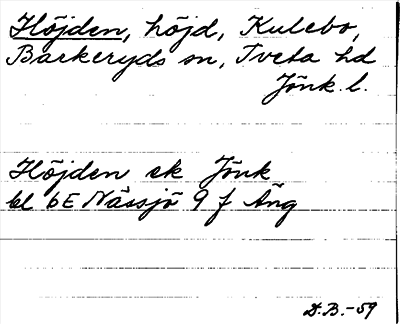 Höjden, höjd, Kulebo,
Barkeryds sn, Tveta hd
Jönk. l.
Höjden ek Jönk
bl 6E Nässjö 9 f Äng
D.B.-59